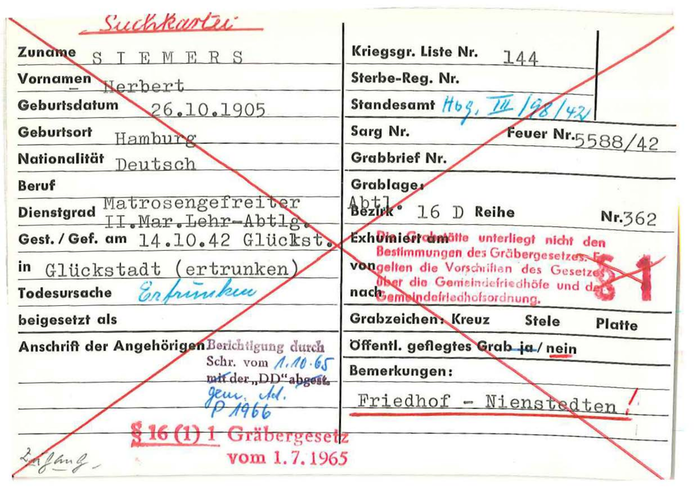 Suchkartei
Zuname SIEMERS
Vornamen Herbert
Geburtsdatum 26.10.1905
Geburtsort Hamburg
Nationalität Deutsch
Beruf
Dienstgrad Matrosengefreiter
II.Mar.Lehr-Abtlg.
Gest. / Gef. am 14.10.42 Glückst.
in Glückstadt (ertrunken)
Todesursache Ertrunken
beigesetzt als
Anschrift der Angehörigen Berichtigung durch
Schr. vom 1.10.65
mit der „DD" abgest.
P 1966
§ 16 (1) 1 Gräbergesetz
vom 1.7.1965
Kriegsgr. Liste Nr. 144
Sterbe-Reg. Nr.
Standesamt Hbg. III/98/42
Sarg Nr. Feuer Nr. 5588/42
Grabbrief Nr.
Grablage: Abtl.
Bezirk 16 D Reihe Nr. 362
Exhumiert am
von
nach
Die Grabstätte unterliegt nicht den
Bestimmungen des Gräbergesetzes. Es
gelten die Vorschriften des Gesetzes
über die Gemeindefriedhöfe und der
Gemeindefriedhofsordnung.
§ 1
Grabzeichen: Kreuz Stele Platte
Öffentl. gepflegtes Grab ja / nein
Bemerkungen:
Friedhof - Nienstedten !